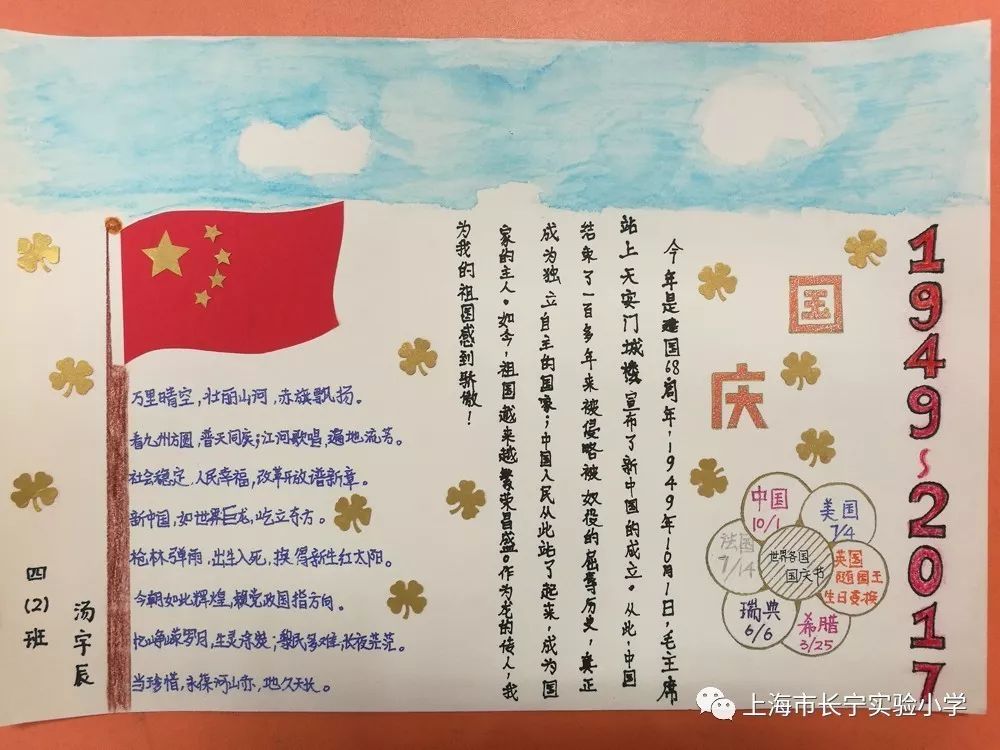 1949~2017
国庆
今年是建国68周年，1949年10月1日，毛主席
站上天安门城楼宣布了新中国的成立。从此，中国
结束了一百多年来被侵略被奴役的屈辱历史，真正
成为独立自主的国家；中国人民从此站了起来，成为国
家的主人。如今，祖国越来越繁荣昌盛。作为龙的传人，我
为我的祖国感到骄傲！
万里晴空，壮丽山河，赤旗飘扬。
看九州方圆，普天同庆；江河歌唱，遍地流芳。
社会稳定，人民幸福，改革开放谱新章。
新中国，如世界巨龙，屹立东方。
枪林弹雨，出生入死，换得新生红太阳。
今朝如此辉煌，赖党政国指方向。
忆峥嵘岁月，生灵涂炭；黎民多难，长夜茫茫。
当珍惜，永葆河山赤，地久天长。
世界各国
国庆节
中国
10/1
美国
7/4
英国
随国王
生日变换
希腊
3/25
瑞典
6/6
法国
7/14
四(2)班
汤宇辰
上海市长宁实验小学